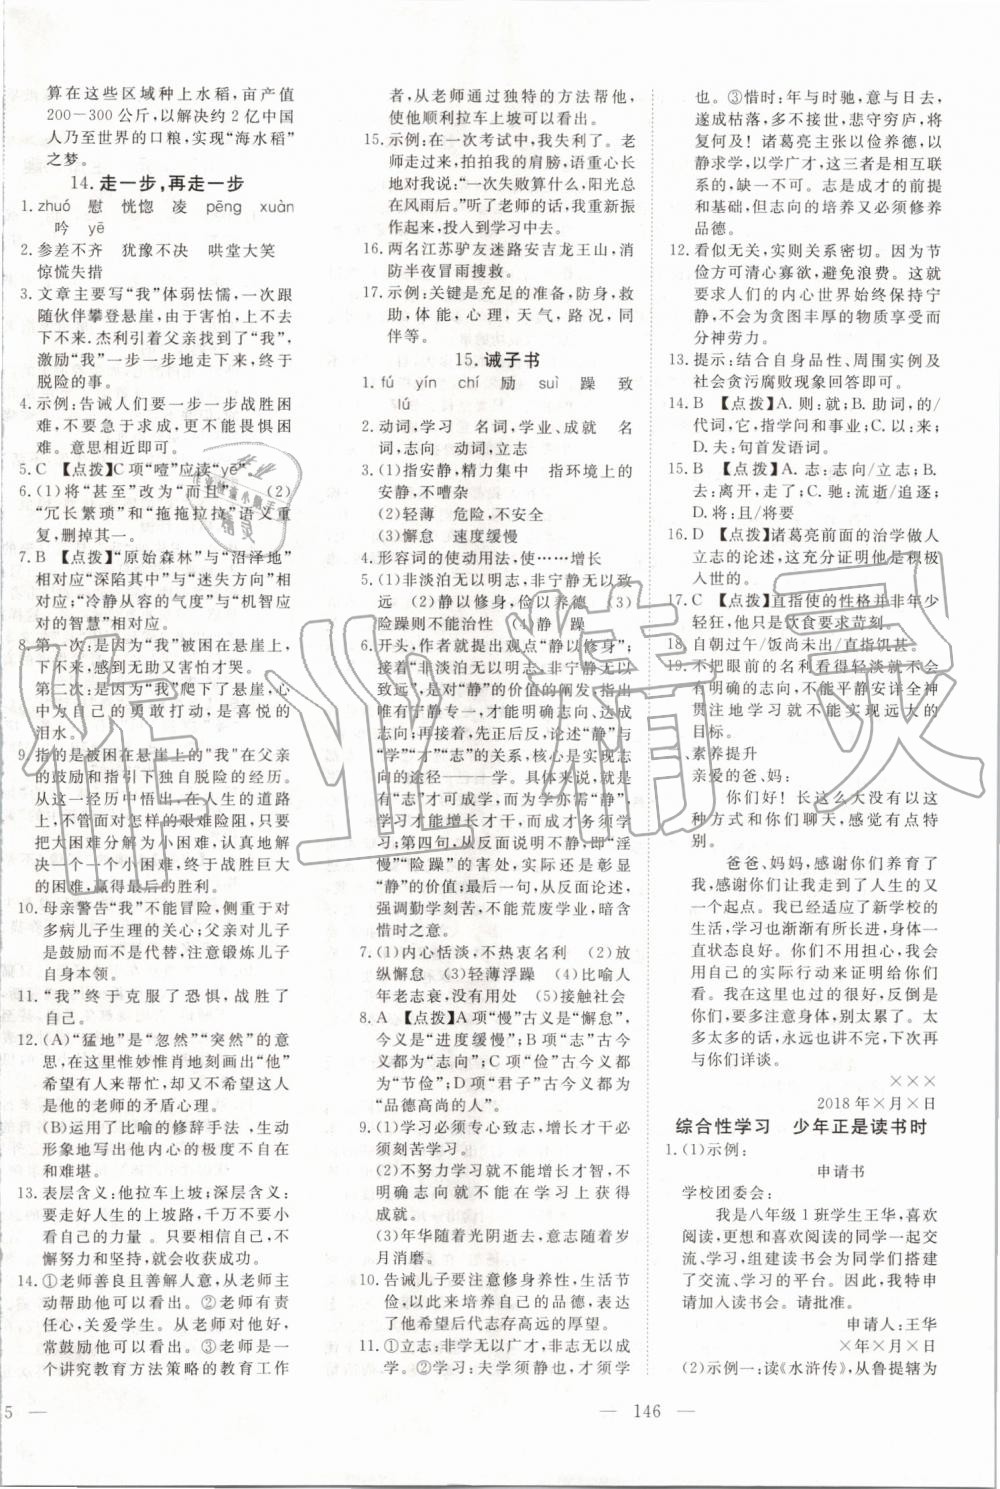 算在这些区域种上水稻,亩产值
200—300公斤,以解决约2亿中国
人乃至世界的口粮,实现“海水稻”
之梦。
14.走一步,再走一步
1. zhuó 慰 恍惚 凌 pēng xuàn
吟 yē
2. 参差不齐 犹豫不决 哄堂大笑
惊慌失措
3. 文章主要写“我”体弱怯懦,一次跟
随伙伴攀登悬崖,由于害怕,上不去
下不来。杰利引着父亲找到了“我”,
激励“我”一步步地走下来,终于
脱险的事。
4. 示例:告诫人们要一步一步战胜困
难,不要急于求成,更不能畏惧困
难。意思相近即可。
5. C 【点拨】C项“噎”应读“yē”。
6. (1)将“甚至”改为“而且” (2)
“冗长繁琐”和“拖拖拉拉”语义重
复,删掉其一。
7. B 【点拨】“原始森林”与“沼泽地”
相对应“深陷其中”与“迷失方向”相
对应;“冷静从容的气度”与“机智应
对的智慧”相对应。
8. 第一次:是因为“我”被困在悬崖上,
下不来,感到无助才哭。
第二次:是因为“我”爬下了悬崖,心
中为自己的勇敢打动,是喜悦的
泪水。
9. 指的是被困在悬崖上的“我”在父亲
的鼓励和指引下独自脱险的经历。
从这一经历中悟出,在人生的道路
上,不管面对怎样的艰难险阻,只要
把大困难分解为小困难,一个一个
地解决一个个小困难,终于战胜巨大
的困难,赢得最后的胜利。
10. 母亲警告“我”不能冒险,侧重于对
多病儿子生理的关心;父亲对儿子
是鼓励而不是代替,注意锻炼儿子
自身本领。
11. “我”终于克服了恐惧,战胜了
自己。
12. (A)“猛地”是“忽然”“突然”的意
思,在这里惟妙惟肖地刻画出“他”
希望有人来帮忙,却又不希望来人
是他的老师的矛盾心理。
(B)运用了比喻的修辞手法,生动
形象地写出他内心的极度不自在
和难堪。
13. 表层含义:他拉车上坡;深层含义:
要走好人生的上坡路,千万不要小
看自己的力量。只要自己不服输,不
懈努力和坚持,就会收获成功。
14. ①老师善良且善解人意,从老师主
动帮助他可以看出。②老师内心善
良,关爱学生。从老师对他好,经
常鼓励他可以看出。③老师是一
个讲究教育方法策略的教育工作
者,从老师通过独特的方法帮他,
使他顺利拉车上坡可以看出。
15. 示例:在一次考试中,我失利了。老
师走过来,拍拍我的肩膀,语重心长
地对我说:“一次失败算什么,阳光总
在风雨后。”听了老师的话,我重新振
作起来,投入到学习中去。
16. 两名江苏驴友迷路安吉龙王山,消
防半夜冒雨搜救。
17. 示例:关键是充足的准备,防身,救
助,体能,心理,天气,路况,同
伴等。
15.诫子书
1. fú yín chí 励 suì 躁 致
lú
2. 动词,学习 名词,学业、成就 名
词,志向 动词,立志
3. (1)指安静,精力集中 指环境上的
安静,不嘈杂
(2)轻薄 危险,不安全
(3)懈怠 速度缓慢
4. 形容词的使动用法,使……增长
5. (1)非淡泊无以明志,非宁静无以致
远 (2)静以修身,俭以养德 (3)
险躁则不能治性 (4)静 躁
6. 开头,作者就提出观点“静以修身”;
接着“非淡泊无以明志,非宁静无以
致远”,是“静”的价值的阐发,指出
唯有宁静专一,才能明确志向,达成
志向;再接着,先正后反,论述“静”
与“学”“才”“志”的关系,核心是实现志
向的途径——学。所以其关系应
是:有“志”才可成学,而学亦需“静”,
学习才能增长才干,而成才务须学
习;第四句,从反面说明不静,即“淫
慢”“险躁”的害处,实际还是彰显
“静”的价值;最后一句,从反面论述,
强调勤学刻苦,不能荒废学业,暗含
惜时之意。
7. (1)内心恬淡,不热衷名利 (2)放
纵懈怠 (3)轻薄浮躁 (4)比喻人
年老志衰,没有用处 (5)接触社会
8. A 【点拨】A项“慢”古义是“懈怠”,
今义是“进度缓慢”;B项“志”古今义
都为“志向”;C项“俭”古今义都为
“节俭”;D项“君子”古今义都为
“品德高尚的人”。
9. (1)学习必须专心致志,增长才干
必须刻苦学习。
(2)不努力学习就不能增长才智,不
明确志向就不能在学习上获得
成就。
(3)年华随光阴逝去,意志随岁
月消磨。
10. 告诫儿子要注意修身养性,生活节
俭,以此来培养自己的品德,表达
了他希望后代志存高远的厚望。
11. ①立志:非学无以广才,非志无以
成学。②学习:夫学须静也,才须学
也。③惜时:年与时驰,意与日去,
遂成枯落,多不接世,悲守穷庐,将
复何及!诸葛亮主张以俭养德,以
静求学,以学广才,这三者是相互联
系的,缺一不可。志是成才的前提
和基础,但志向的培养又必须修养
品德。
12. 看似无关,实则关系密切。因为节
俭方可清心寡欲,避免浪费。这就
要求人们的内心世界始终保持宁
静,不会为贪图丰厚的物质享受而
分神劳力。
13. 提示:结合自身品性、周围实例及
社会贪污腐败现象回答即可。
14. B 【点拨】A.则:就;B.助词,的/
代词,它,指学问和事业;C.以:来;
D.夫:句首发语词。
15. B 【点拨】A.志:志向/立志;B.
去:逝去/距离;C.驰:流逝/追逐;
D.将:且/将要
16. D 【点拨】诸葛亮前面的治学做人
立志的论述,这充分证明他是积极
入世的。
17. C 【点拨】直指使的性格并非年少
轻狂,他只是饮食要求苛刻。
18. 自朝过午/饭尚未出/直指饥甚。
19. 不把眼前的名利看得轻淡就不会
有明确的志向,不能平静安详全神
贯注地学习就不能实现远大的
目标。
素养提升
亲爱的爸、妈:
你们好!长这么大没有以这
种方式和你们聊天,感觉有点特
别。
爸爸、妈妈,感谢你们养育了
我,感谢你们让我走到了人生的又
一个起点。我已经适应了新学校的
生活,学习也渐渐有所长进,身体一
直状态良好。你们不用担心,我会
用自己的实际行动来证明给你们
看。我在这里过的很好,反倒是你
们,要多注意身体,别太累了。太
多太多的话,永远也讲不完,下次再
与你们详谈。
×××
2018年×月×日
综合性学习 少年正是读书时
1. (1)示例:
申请书
学校团委会:
我是八年级1班学生王华,喜欢
阅读,更想和喜欢阅读的同学一起交
流、学习,组建读书会为同学们搭建
了交流、学习的平台。因此,我特申
请加入读书会。请批准。
申请人:王华
×年×月×日
(2)示例一:读《水浒传》,从鲁提辖为
5 —
— 146 —
作业精灵